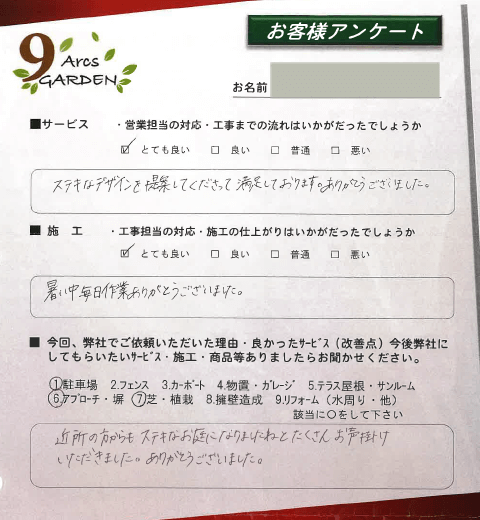 お客様アンケート
9 Arcs GARDEN
お名前
■サービス ・営業担当の対応・工事までの流れはいかがだったでしょうか
☑ とても良い □ 良い □ 普通 □ 悪い
ステキなデザインを提案してくださって満足しております。ありがとうございました。
■ 施 工 ・工事担当の対応・施工の仕上がりはいかがだったでしょうか
☑ とても良い □ 良い □ 普通 □ 悪い
暑い中毎日作業ありがとうございました。
■ 今回、弊社でご依頼いただいた理由・良かったサービス（改善点）今後弊社に
してもらいたいサービス・施工・商品等ありましたらお聞かせください。
①駐車場 2.フェンス 3.カーポート 4.物置・ガレージ 5.テラス屋根・サンルーム
⑥アプローチ・塀 ⑦芝・植栽 8.擁壁造成 9.リフォーム（水周り・他）
該当に○をして下さい
近所の方からも ステキなお庭になりましたねとたくさん お声掛け
いただきました。ありがとうございました。